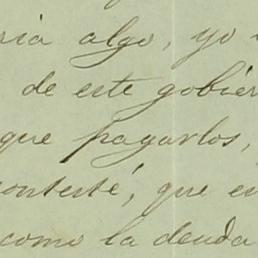 ria algo, yo
de este gobier
que pagarlos,
contesté, que en
como la deuda